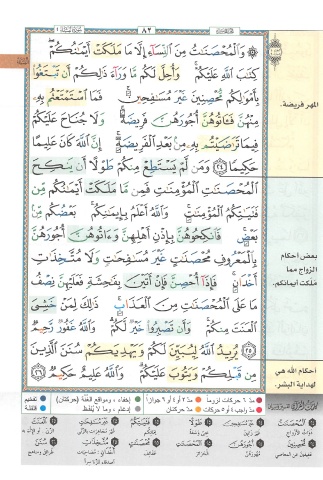 ٨٢
وَالْمُحْصَنَٰتُ مِنَ النِّسَآءِ إِلَّا مَا مَلَكَتْ أَيْمَٰنُكُمْ
كِتَٰبَ اللَّهِ عَلَيْكُمْ وَأُحِلَّ لَكُم مَّا وَرَآءَ ذَٰلِكُمْ أَن تَبْتَغُوا
بِأَمْوَٰلِكُم مُّحْصِنِينَ غَيْرَ مُسَٰفِحِينَ فَمَا اسْتَمْتَعْتُم بِهِۦ
مِنْهُنَّ فَـَٔاتُوهُنَّ أُجُورَهُنَّ فَرِيضَةً وَلَا جُنَاحَ عَلَيْكُمْ
فِيمَا تَرَٰضَيْتُم بِهِۦ مِنۢ بَعْدِ الْفَرِيضَةِ إِنَّ اللَّهَ كَانَ عَلِيمًا
حَكِيمًا ٢٤ وَمَن لَّمْ يَسْتَطِعْ مِنكُمْ طَوْلًا أَن يَنكِحَ
الْمُحْصَنَٰتِ الْمُؤْمِنَٰتِ فَمِن مَّا مَلَكَتْ أَيْمَٰنُكُم مِّن
فَتَيَٰتِكُمُ الْمُؤْمِنَٰتِ وَاللَّهُ أَعْلَمُ بِإِيمَٰنِكُم بَعْضُكُم مِّنۢ
بَعْضٍ فَانكِحُوهُنَّ بِإِذْنِ أَهْلِهِنَّ وَءَاتُوهُنَّ أُجُورَهُنَّ
بِالْمَعْرُوفِ مُحْصَنَٰتٍ غَيْرَ مُسَٰفِحَٰتٍ وَلَا مُتَّخِذَٰتِ
أَخْدَانٍ فَإِذَآ أُحْصِنَّ فَإِنْ أَتَيْنَ بِفَٰحِشَةٍ فَعَلَيْهِنَّ نِصْفُ
مَا عَلَى الْمُحْصَنَٰتِ مِنَ الْعَذَابِ ذَٰلِكَ لِمَنْ خَشِىَ
الْعَنَتَ مِنكُمْ وَأَن تَصْبِرُوا خَيْرٌ لَّكُمْ وَاللَّهُ غَفُورٌ رَّحِيمٌ
٢٥ يُرِيدُ اللَّهُ لِيُبَيِّنَ لَكُمْ وَيَهْدِيَكُمْ سُنَنَ الَّذِينَ
مِن قَبْلِكُمْ وَيَتُوبَ عَلَيْكُمْ وَاللَّهُ عَلِيمٌ حَكِيمٌ ٢٦
المهر فريضة.
بعض أحكام
الزواج مما
ملكت أيمانكم.
أحكام الله هي
لهداية البشر.
مدّ ٦ حركات لزوماً
مدّ ٢ أو ٤ أو ٦ جوازاً
إخفاء، ومواقع الغنّة (حركتان)
تفخيم
مدّ واجب ٤ أو ٥ حركات
مدّ حركتان
إدغام، وما لا يُلفظ